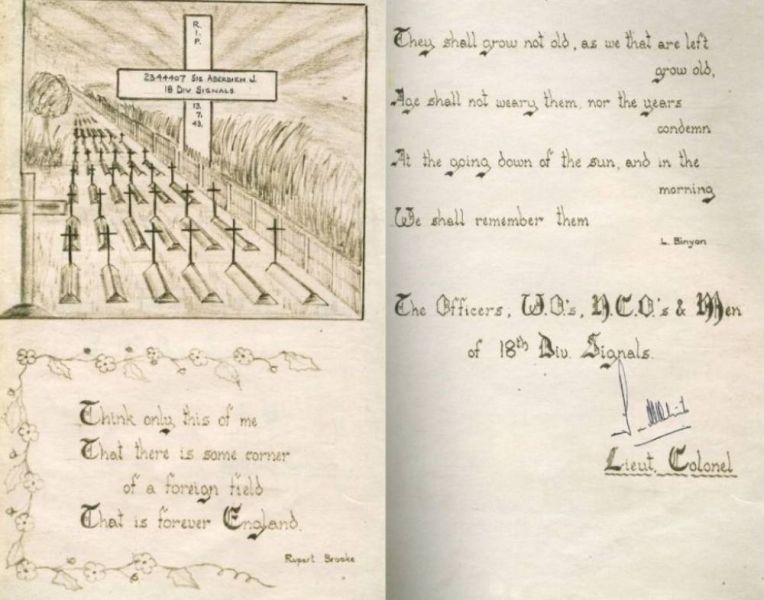 R.
I.
P.
2344407 Sig Aberdien J.
18 Div Signals.
13.
7.
43.
Think only, this of me
That there is some corner
of a foreign field
That is forever England.
Rupert Brooke
They shall grow not old, as we that are left
grow old,
Age shall not weary them, nor the years
condemn
At the going down of the sun, and in the
morning
We shall remember them
L. Binyon
The Officers, W.O.'s, N.C.O.'s & Men
of 18th Div. Signals.
Lieut. Colonel